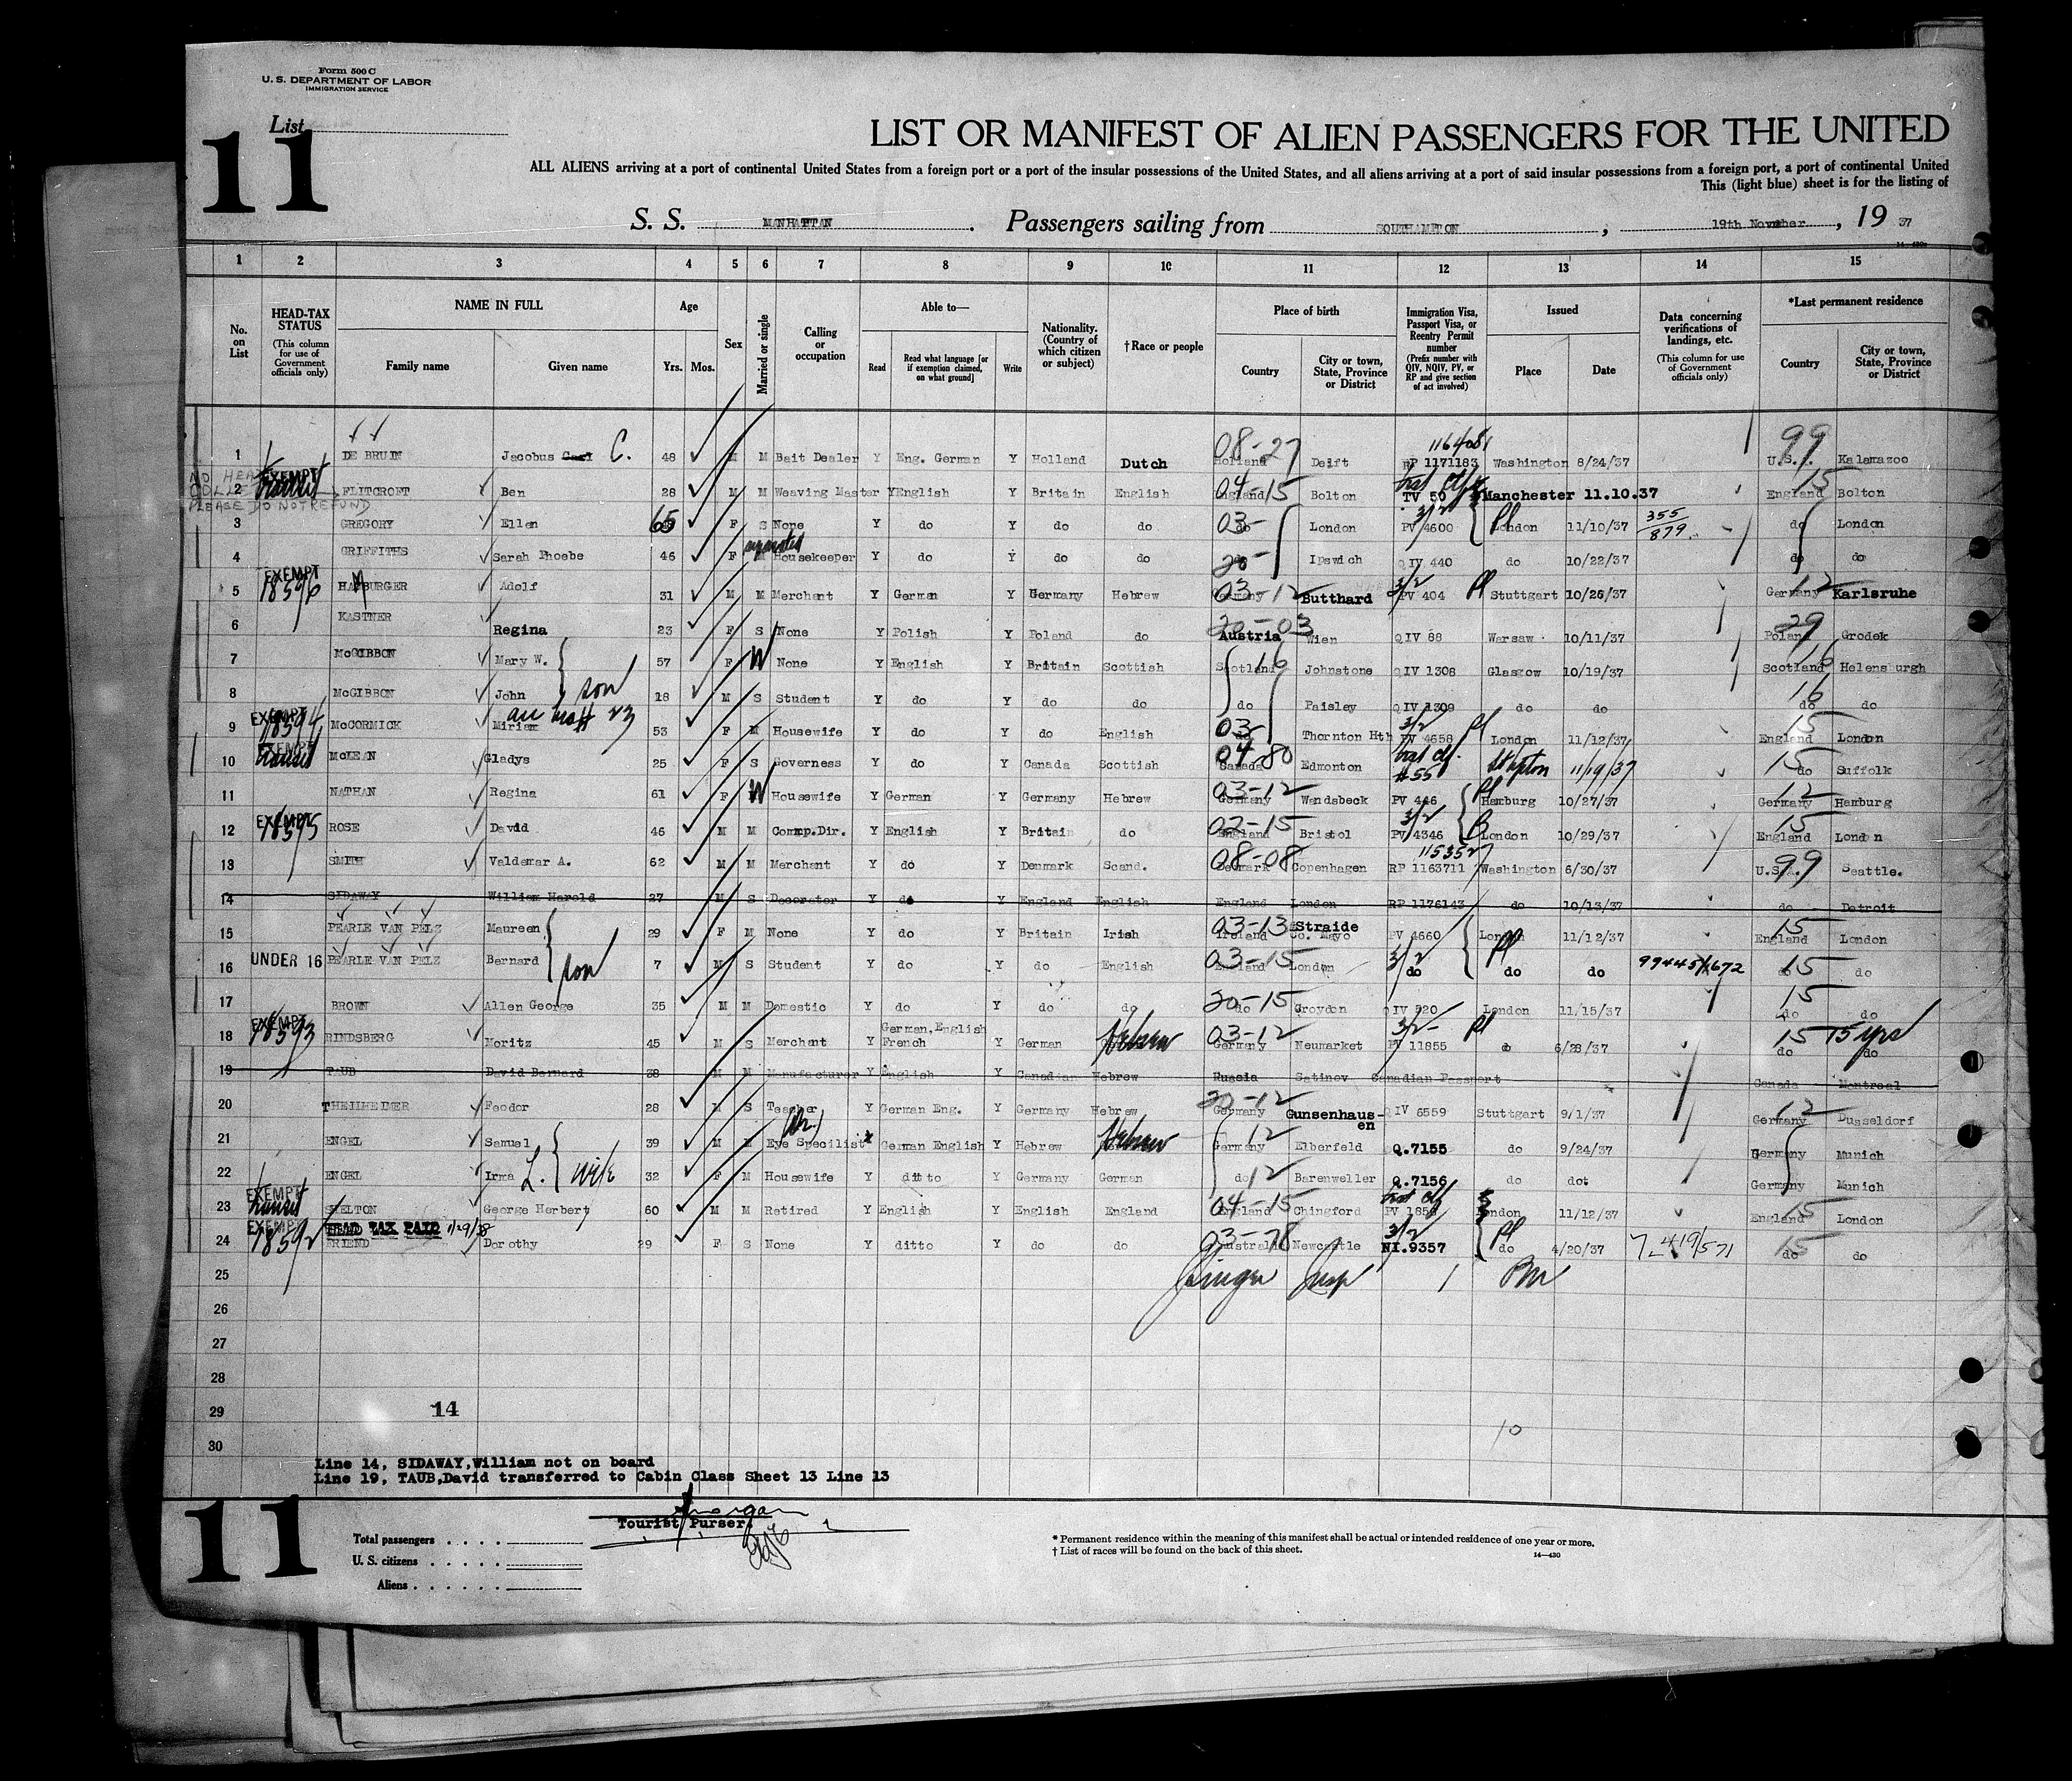 Form 500 C
U. S. DEPARTMENT OF LABOR
IMMIGRATION SERVICE
List
11
LIST OR MANIFEST OF ALIEN PASSENGERS FOR THE UNITED
ALL ALIENS arriving at a port of continental United States from a foreign port or a port of the insular possessions of the United States, and all aliens arriving at a port of said insular possessions from a foreign port, a port of continental United
This (light blue) sheet is for the listing of
S. S. MANHATTAN. Passengers sailing from SOUTHAMPTON, 19th November, 19 37
1 2 3 4 5 6 7 8 9 10 11 12 13 14 15
No. on List
HEAD-TAX STATUS (This column for use of Government officials only)
NAME IN FULL Family name Given name
Age Yrs. Mos.
Sex
Married or single
Calling or occupation
Able to— Read Read what language [or if exemption claimed, on what ground] Write
Nationality. (Country of which citizen or subject)
†Race or people
Place of birth Country City or town, State, Province or District
Immigration Visa, Passport Visa, or Reentry Permit number (Prefix number with QIV, NQIV, PV, or RP and give section of act involved)
Issued Place Date
Data concerning verifications of landings, etc. (This column for use of Government officials only)
*Last permanent residence Country City or town, State, Province or District
1 DE BRUIN Jacobus Carl C. 48 M M Bait Dealer Y Eng. German Y Holland Dutch 08-27 Holland Delft 116408 RP 1171183 Washington 8/24/37 99 U.S.A. Kalamazoo
NO HEAD
PLEASE DO NOT REFUND
2 EXEMPT transit FLITCROFT Ben 28 M M Weaving Master Y English Y Britain English 04-15 England Bolton TV 50 Manchester 11.10.37 15 England Bolton
3 GREGORY Ellen 65 F S None Y do Y do do 03- do London 3/2 PV 4600 Pl London 11/10/37 355/879 do London
4 GRIFFITHS Sarah Phoebe 46 F M separated Housekeeper Y do Y do do 20- Ipswich QIV 440 do 10/22/37 do do
5 EXEMPT 18596 HAMBURGER Adolf 31 M M Merchant Y German Y Germany Hebrew 03-12 Germany Butthard 3/2 PV 404 Pl Stuttgart 10/26/37 12 Germany Karlsruhe
6 KASTNER Regina 23 F S None Y Polish Y Poland do 20-03 Austria Wien QIV 68 Warsaw 10/11/37 29 Poland Grodek
7 McGIBBON Mary W. 57 F W None Y English Y Britain Scottish 16 Scotland Johnstone QIV 1308 Glasgow 10/19/37 16 Scotland Helensburgh
8 McGIBBON John son 18 M S Student Y do Y do do do Paisley QIV 1309 do do 16 do do
9 EXEMPT 18594 McCORMICK Miriam 53 F M Housewife Y do Y do English 03- do Thornton Hth 3/2 PV 4658 Pl London 11/12/37 15 England London
10 EXEMPT transit McLEAN Gladys 25 F S Governess Y do Y Canada Scottish 04-80 Canada Edmonton #55 11/19/37 15 do Suffolk
11 NATHAN Regina 61 F W Housewife Y German Y Germany Hebrew 03-12 Germany Wandsbeck PV 446 Pl Hamburg 10/27/37 12 Germany Hamburg
12 EXEMPT 18595 ROSE David 46 M M Comp.Dir. Y English Y Britain do 02-15 England Bristol 3/2 PV 4346 London 10/29/37 15 England London
13 SMITH Valdemar A. 62 M M Merchant Y do Y Denmark Scand. 08-08 Denmark Copenhagen RP 1163711 Washington 6/30/37 99 U.S.A. Seattle.
14 SIDAWAY William Harold 27 M S Decorator Y do Y England English England London RP 1176143 do 10/13/37 do Detroit
15 PEARLE VAN PELZ Maureen 29 F M None Y do Y Britain Irish 03-13 Ireland Straide Co. Mayo PV 4660 London 11/12/37 15 England London
16 UNDER 16 PEARLE VAN PELZ Bernard son 7 M S Student Y do Y do English 03-15 England London 3/2 do Pl do do 15 do do
17 BROWN Allen George 35 M M Domestic Y do Y do do 20-15 do Croydon QIV 520 London 11/15/37 15 do do
18 EXEMPT 18593 RINDSBERG Moritz 45 M S Merchant Y German, English French Y German Hebrew 03-12 Germany Neumarket 3/2 PV 11855 Pl do 6/28/37 15 15 yrs do do
19 TAUB David Bernard 38 M M Manufacturer Y English Y Canadian Hebrew Russia Satinov Canadian Passport Canada Montreal
20 THEILHEIMER Feodor 28 M S Teacher Y German Eng. Y Germany Hebrew 20-12 Germany Gunsenhausen QIV 6559 Stuttgart 9/1/37 12 Germany Dusseldorf
21 ENGEL Samuel 39 M M (Dr.) Eye Specilist German English Y Hebrew Hebrew 12 Germany Elberfeld Q.7155 do 9/24/37 Germany Munich
22 ENGEL Irma L. wife 32 F M Housewife Y ditto Y Germany German 12 do Barenweller Q.7156 do dot Germany Munich
23 EXEMPT transit SHELTON George Herbert 60 M M Retired Y English Y English England 04-15 England Chingford London 11/12/37 15 England London
24 EXEMPT 18592 HEAD TAX PAID 1/29/38 FRIEND Dorothy 29 F S None Y ditto Y do do 03-78 Australia Newcastle 3/2 NI.9357 Pl do 4/20/37 15 do do
25
26
27
28
29 14
30
10
Line 14, SIDAWAY,William not on board
Line 19, TAUB,David transferred to Cabin Class Sheet 13 Line 13
11
Tourist Purser.
Total passengers
U. S. citizens
Aliens
* Permanent residence within the meaning of this manifest shall be actual or intended residence of one year or more.
† List of races will be found on the back of this sheet.
14—430